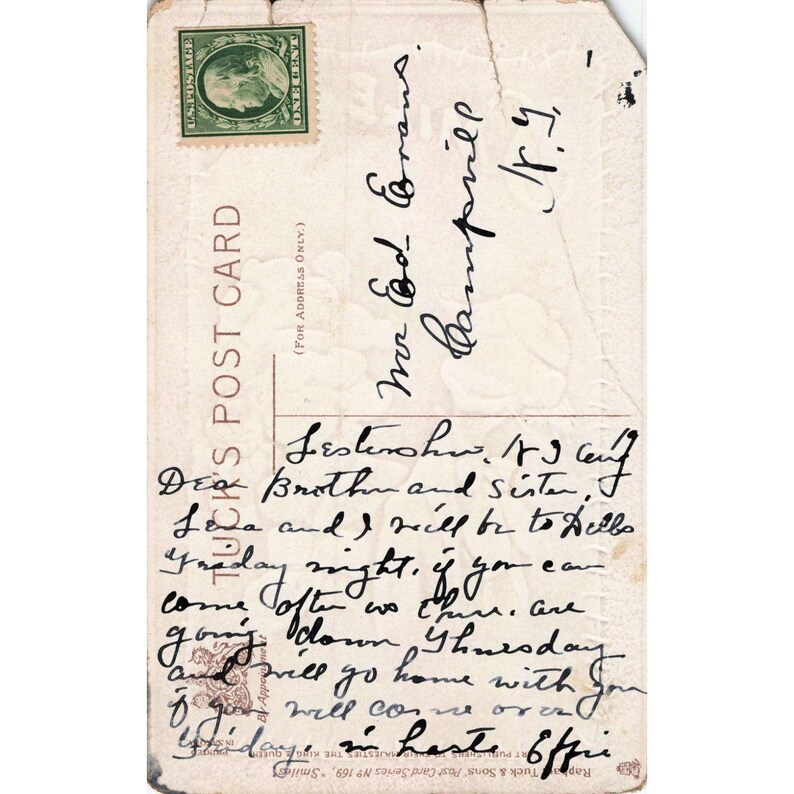 U.S. POSTAGE
ONE CENT
TUCK'S POST CARD
(FOR ADDRESS ONLY.)
Mr Ed- Evans.
Campville
N. Y.
Lestershire, N Y Aug 19
Dear Brother and Sister,
Lena and I will be to Dells
Friday night, if you can
come after us there. are
going down Thursday
and will go home with you
if you will come over
Friday, in haste Effie
By Appointment
PRINTED
IN SAXONY
ART PUBLISHERS TO THEIR MAJESTIES THE KING & QUEEN
Raphael Tuck & Sons' Post Card Series Nº 169, "Smiles"